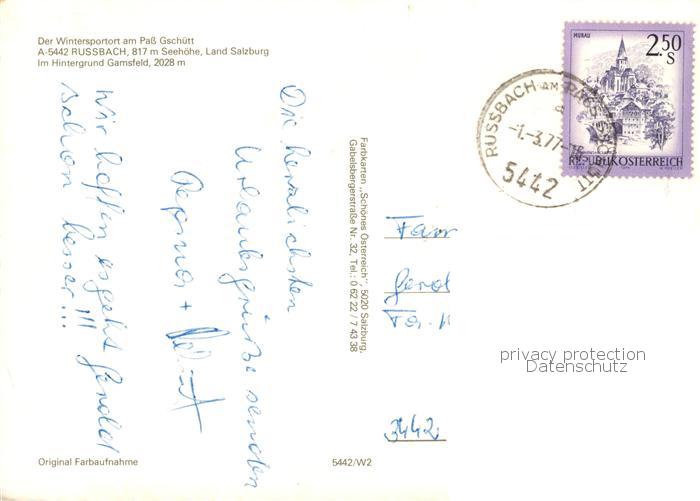 Der Wintersportort am Paß Gschütt
A-5442 RUSSBACH, 817 m Seehöhe, Land Salzburg
Im Hintergrund Gamsfeld, 2028 m
Die herzlichsten
Urlaubsgrüße senden
+
Wir hoffen es geht
schon besser!!!
Original Farbaufnahme
Farbkarten „Schönes Österreich", 5020 Salzburg,
Gabelsbergerstraße Nr. 32, Tel.: 0 62 22 / 7 43 38
5442/W2
MURAU
2.50
S
REPUBLIK ÖSTERREICH
RUSSBACH AM PASS GSCHÜTT
-1.-3.77-
5442
Fam
Gerd
3442
privacy protection
Datenschutz